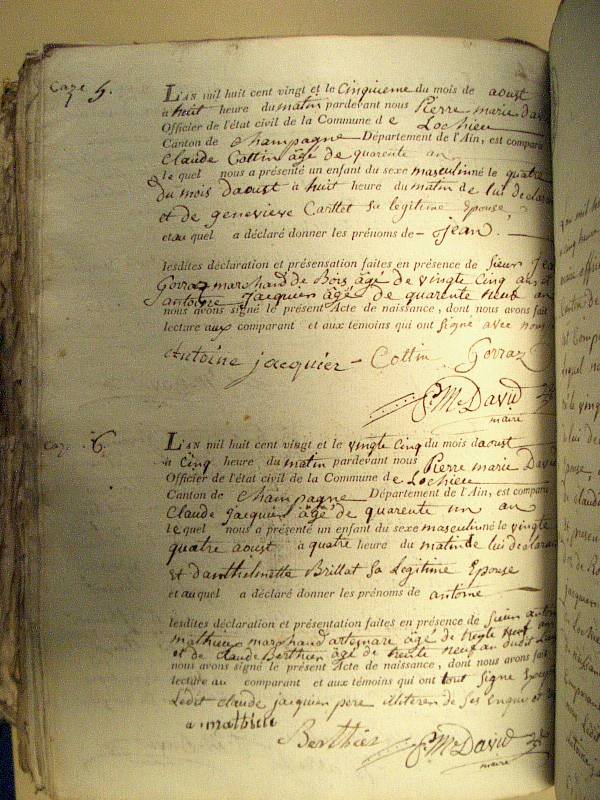 Caze 5.
L'AN mil huit cent vingt et le Cinquieme du mois de aoust
à huit heure du matin pardevant nous Pierre marie David
Officier de l'état civil de la Commune de Lochieu
Canton de Champagne Département de l'Ain, est comparu
Claude Cottin âgé de quarente an
le quel nous a présenté un enfant du sexe masculin né le quatre
du mois daoust à huit heure du matin de lui declarant
et de genevieve Carttet sa legitime Epouse,
et au quel a déclaré donner les prénoms de jean.
lesdites déclaration et présensation faites en présence de sieur Jean
Gorraz marchand de Bois âgé de vingte Cinq ans et
antoine Jacquier âgé de quarente neuf an
nous avons signé le présent Acte de naissance, dont nous avons fait
lecture aux comparant et aux témoins qui ont signé avec nous
Antoine jacquier - Cottin Gorraz
P. M. David
maire
Caze 6.
L'AN mil huit cent vingt et le vingte Cinq du mois daoust
à Cinq heure du matin pardevant nous Pierre marie David
Officier de l'état civil de la Commune de Lochieu
Canton de Champagne Département de l'Ain, est comparu
Claude Jacquier âgé de quarente un an
le quel nous a présenté un enfant du sexe masculin né le vingte
quatre aoust à quatre heure du matin de lui declarant
et danthelmette Brillat sa Legitime Epouse
et au quel a déclaré donner les prénoms de antoine
lesdites déclaration et présentation faites en présence de sieur antoine
mathieu marchand artemare âgé de trente neuf
et de claude Berthier âgé de trente neuf an dudit
nous avons signé le présent Acte de naissance, dont nous avons fait
lecture au comparant et aux témoins qui ont tout signé Excepté
Ledit claude jacquier pere illiteré de ses Enquis et
a. mathieu
Berthier P. M. David
maire